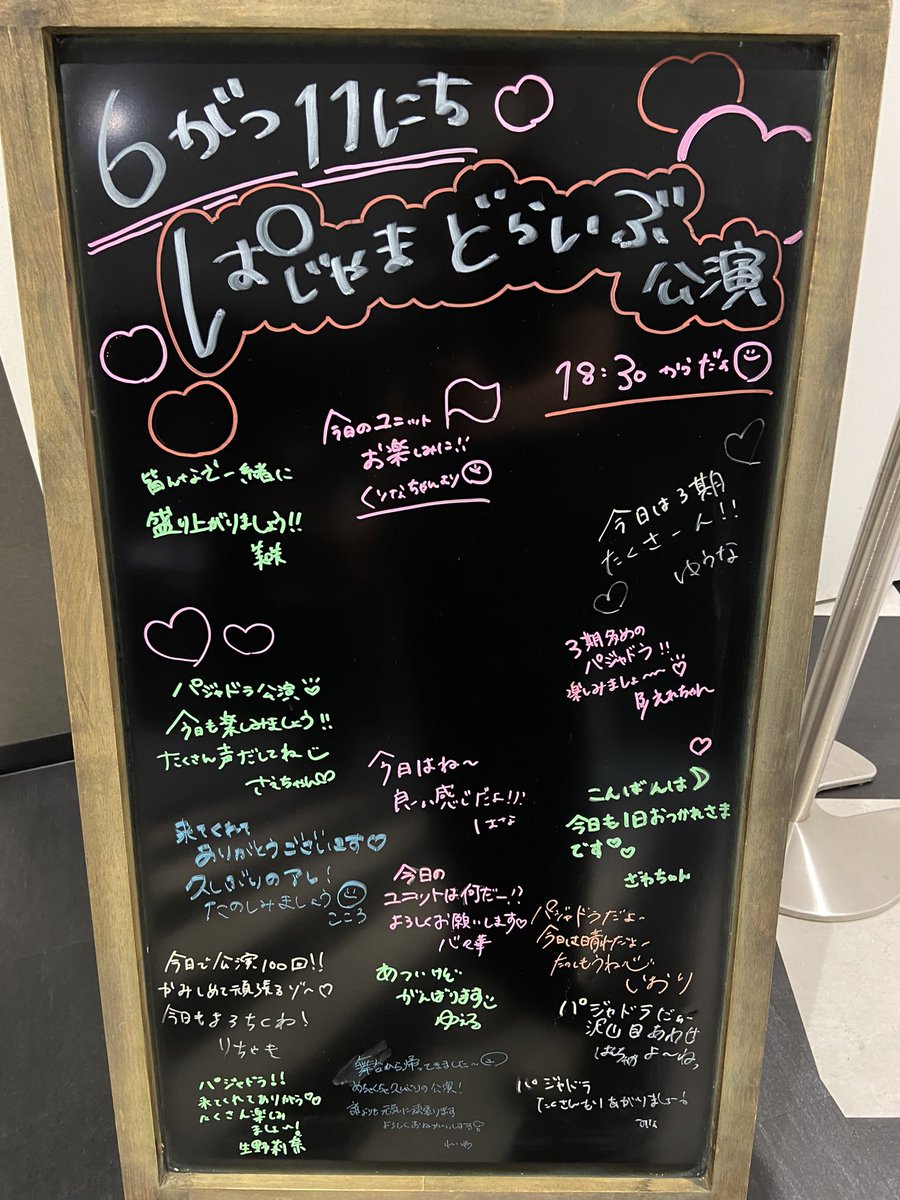 6がつ11にち
ぱじゃまどらいぶ
公演
18:30からだよ
今日のユニット
お楽しみに!!
くりなちゃんより
皆んなで一緒に
盛り上がりましょう!!
美咲
今日は3期
たくさーん!!
ゆうな
3期多めの
パジャドラ!!
楽しみましょ〜〜♡
パジャドラ公演♡
今日も楽しみましょう!!
たくさん声だしてね
さえちゃん♡
今日はね〜
良い感じだよ!!
こんばんは
今日も1日おつかれさま
です♡♡
ざわちゃん
来てくれて
ありがとうございます♡
久しぶりのアレ!
たのしみましょう
こころ
今日の
ユニットは何だー!?
よろしくお願いします♡
パジャドラだよ〜
今日は晴れだよ〜
たのしもうね
いおり
今日で公演100回!!
かみしめて頑張るゾ〜♡
今日もよろちくわ!
りちゃも
あついけど
がんばります
ゆえる
パジャドラだよ〜
沢山目あわせ
よ〜ねっ
パジャドラ!!
来てくれてありがとう♡♡
たくさん楽しみ
ましょ〜!
生野莉奈
舞台から帰ってきました〜
めちゃくちゃ久しぶりの公演!
誰よりも元気に頑張ります
よろしくおねがいします
パジャドラ
たくさんもりあがりましょー!